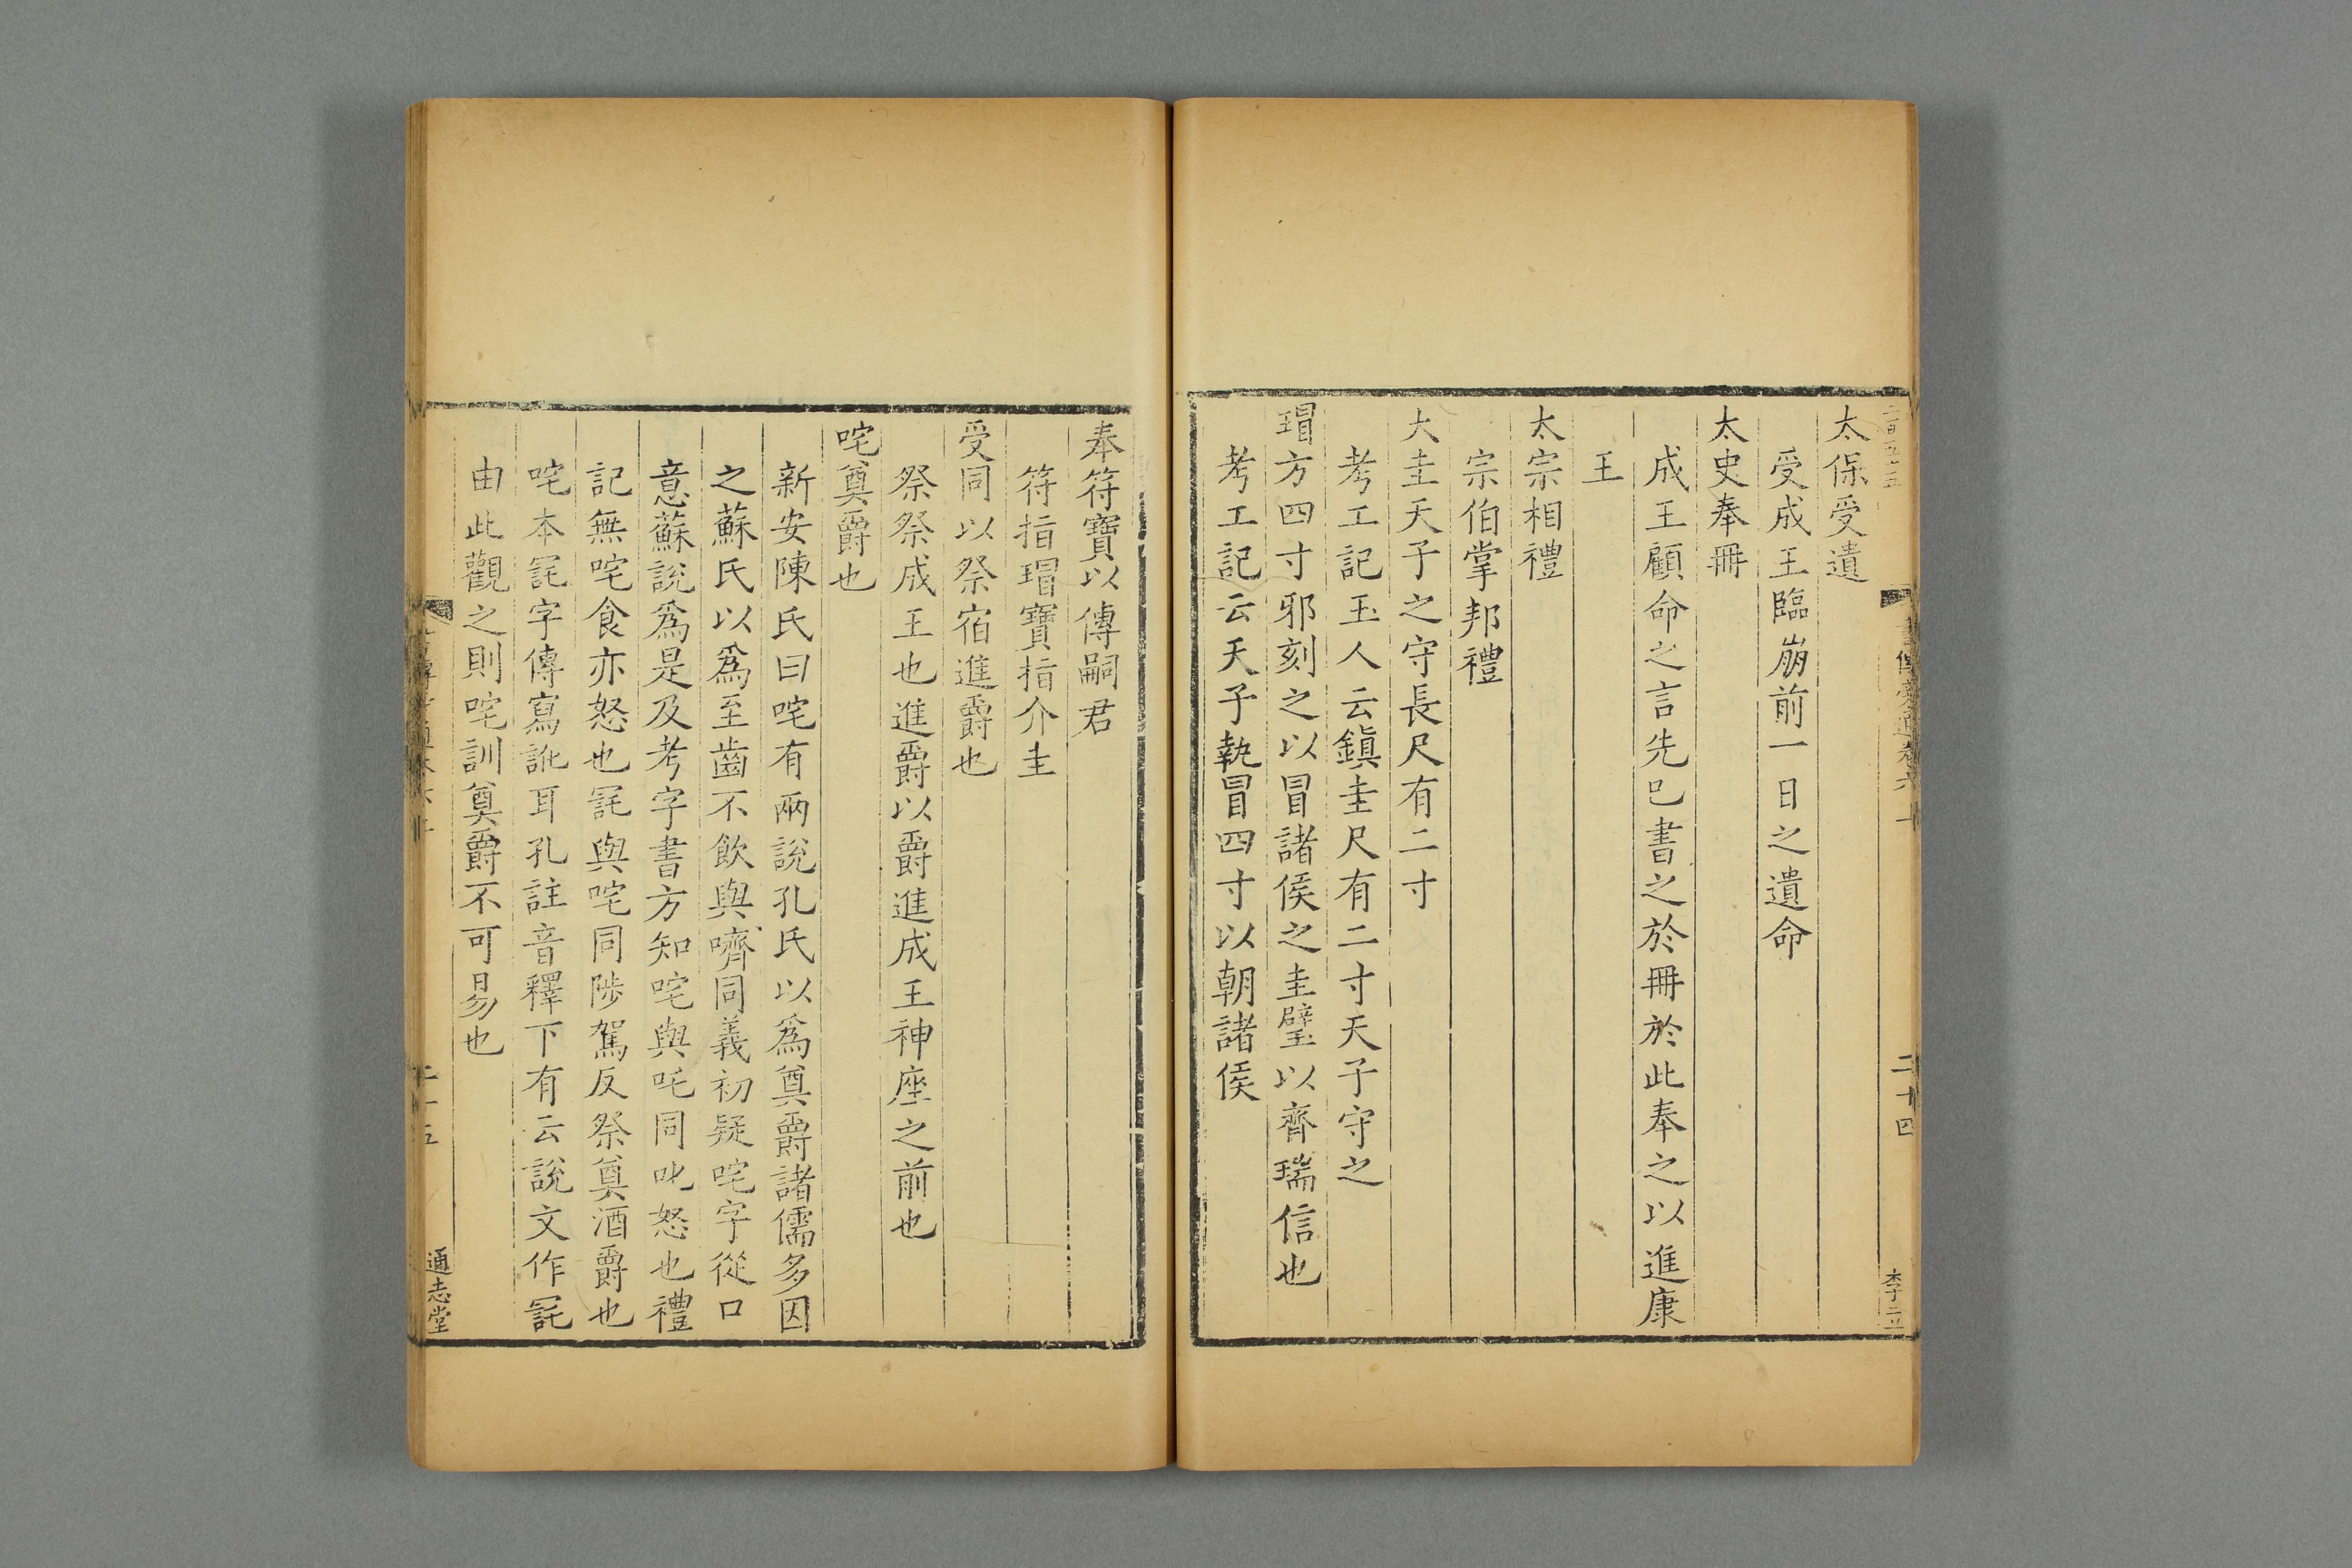 太保受遺
受成王臨崩前一日之遺命
太史奉冊
成王顧命之言先已書之於冊於此奉之以進康
王
太宗相禮
宗伯掌邦禮
大圭天子之守長尺有二寸
考工記玉人云鎮圭尺有二寸天子守之
瑁方四寸邪刻之以冒諸侯之圭璧以齊瑞信也
考工記云天子執冒四寸以朝諸侯
二十四
奉符寶以傳嗣君
符指瑁寶指介圭
受同以祭宿進爵也
祭祭成王也進爵以爵進成王神座之前也
咤奠爵也
新安陳氏曰咤有兩說孔氏以為奠爵諸儒多因
之蘇氏以為至齒不飲與嚌同義初疑咤字從口
意蘇說為是及考字書方知咤與吒同叱怒也禮
記無咤食亦怒也㓃與咤同陟駕反祭奠酒爵也
咤本㓃字傳寫訛耳孔註音釋下有云說文作㓃
由此觀之則咤訓奠爵不可易也
通志堂